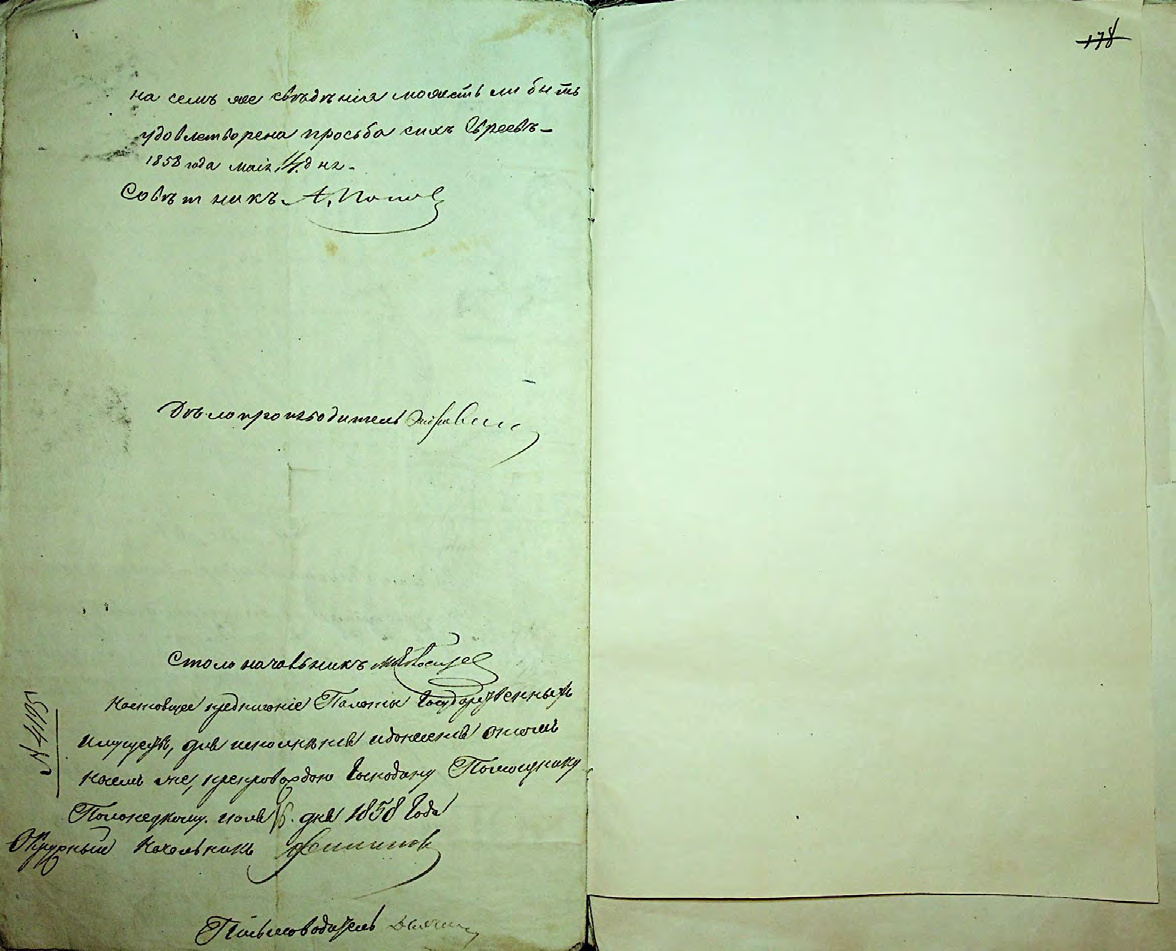 178
на семъ же свѣдѣнія можетъ ли быть
удовлетворена просьба сихъ Евреевъ –
1858 года маія 14 дня.
Совѣтникъ А. Попов
Дѣлопроизводитель
Столоначальникъ
Настоящее предписаніе Палаты Государственныхъ
Имуществъ, для исполненія и донесенія о томъ
мнѣ же, препровождаю Господину Помощнику
Полонскому. июля дня 1858 Года
№ 4195
Окружный Начальникъ
Письмоводитель